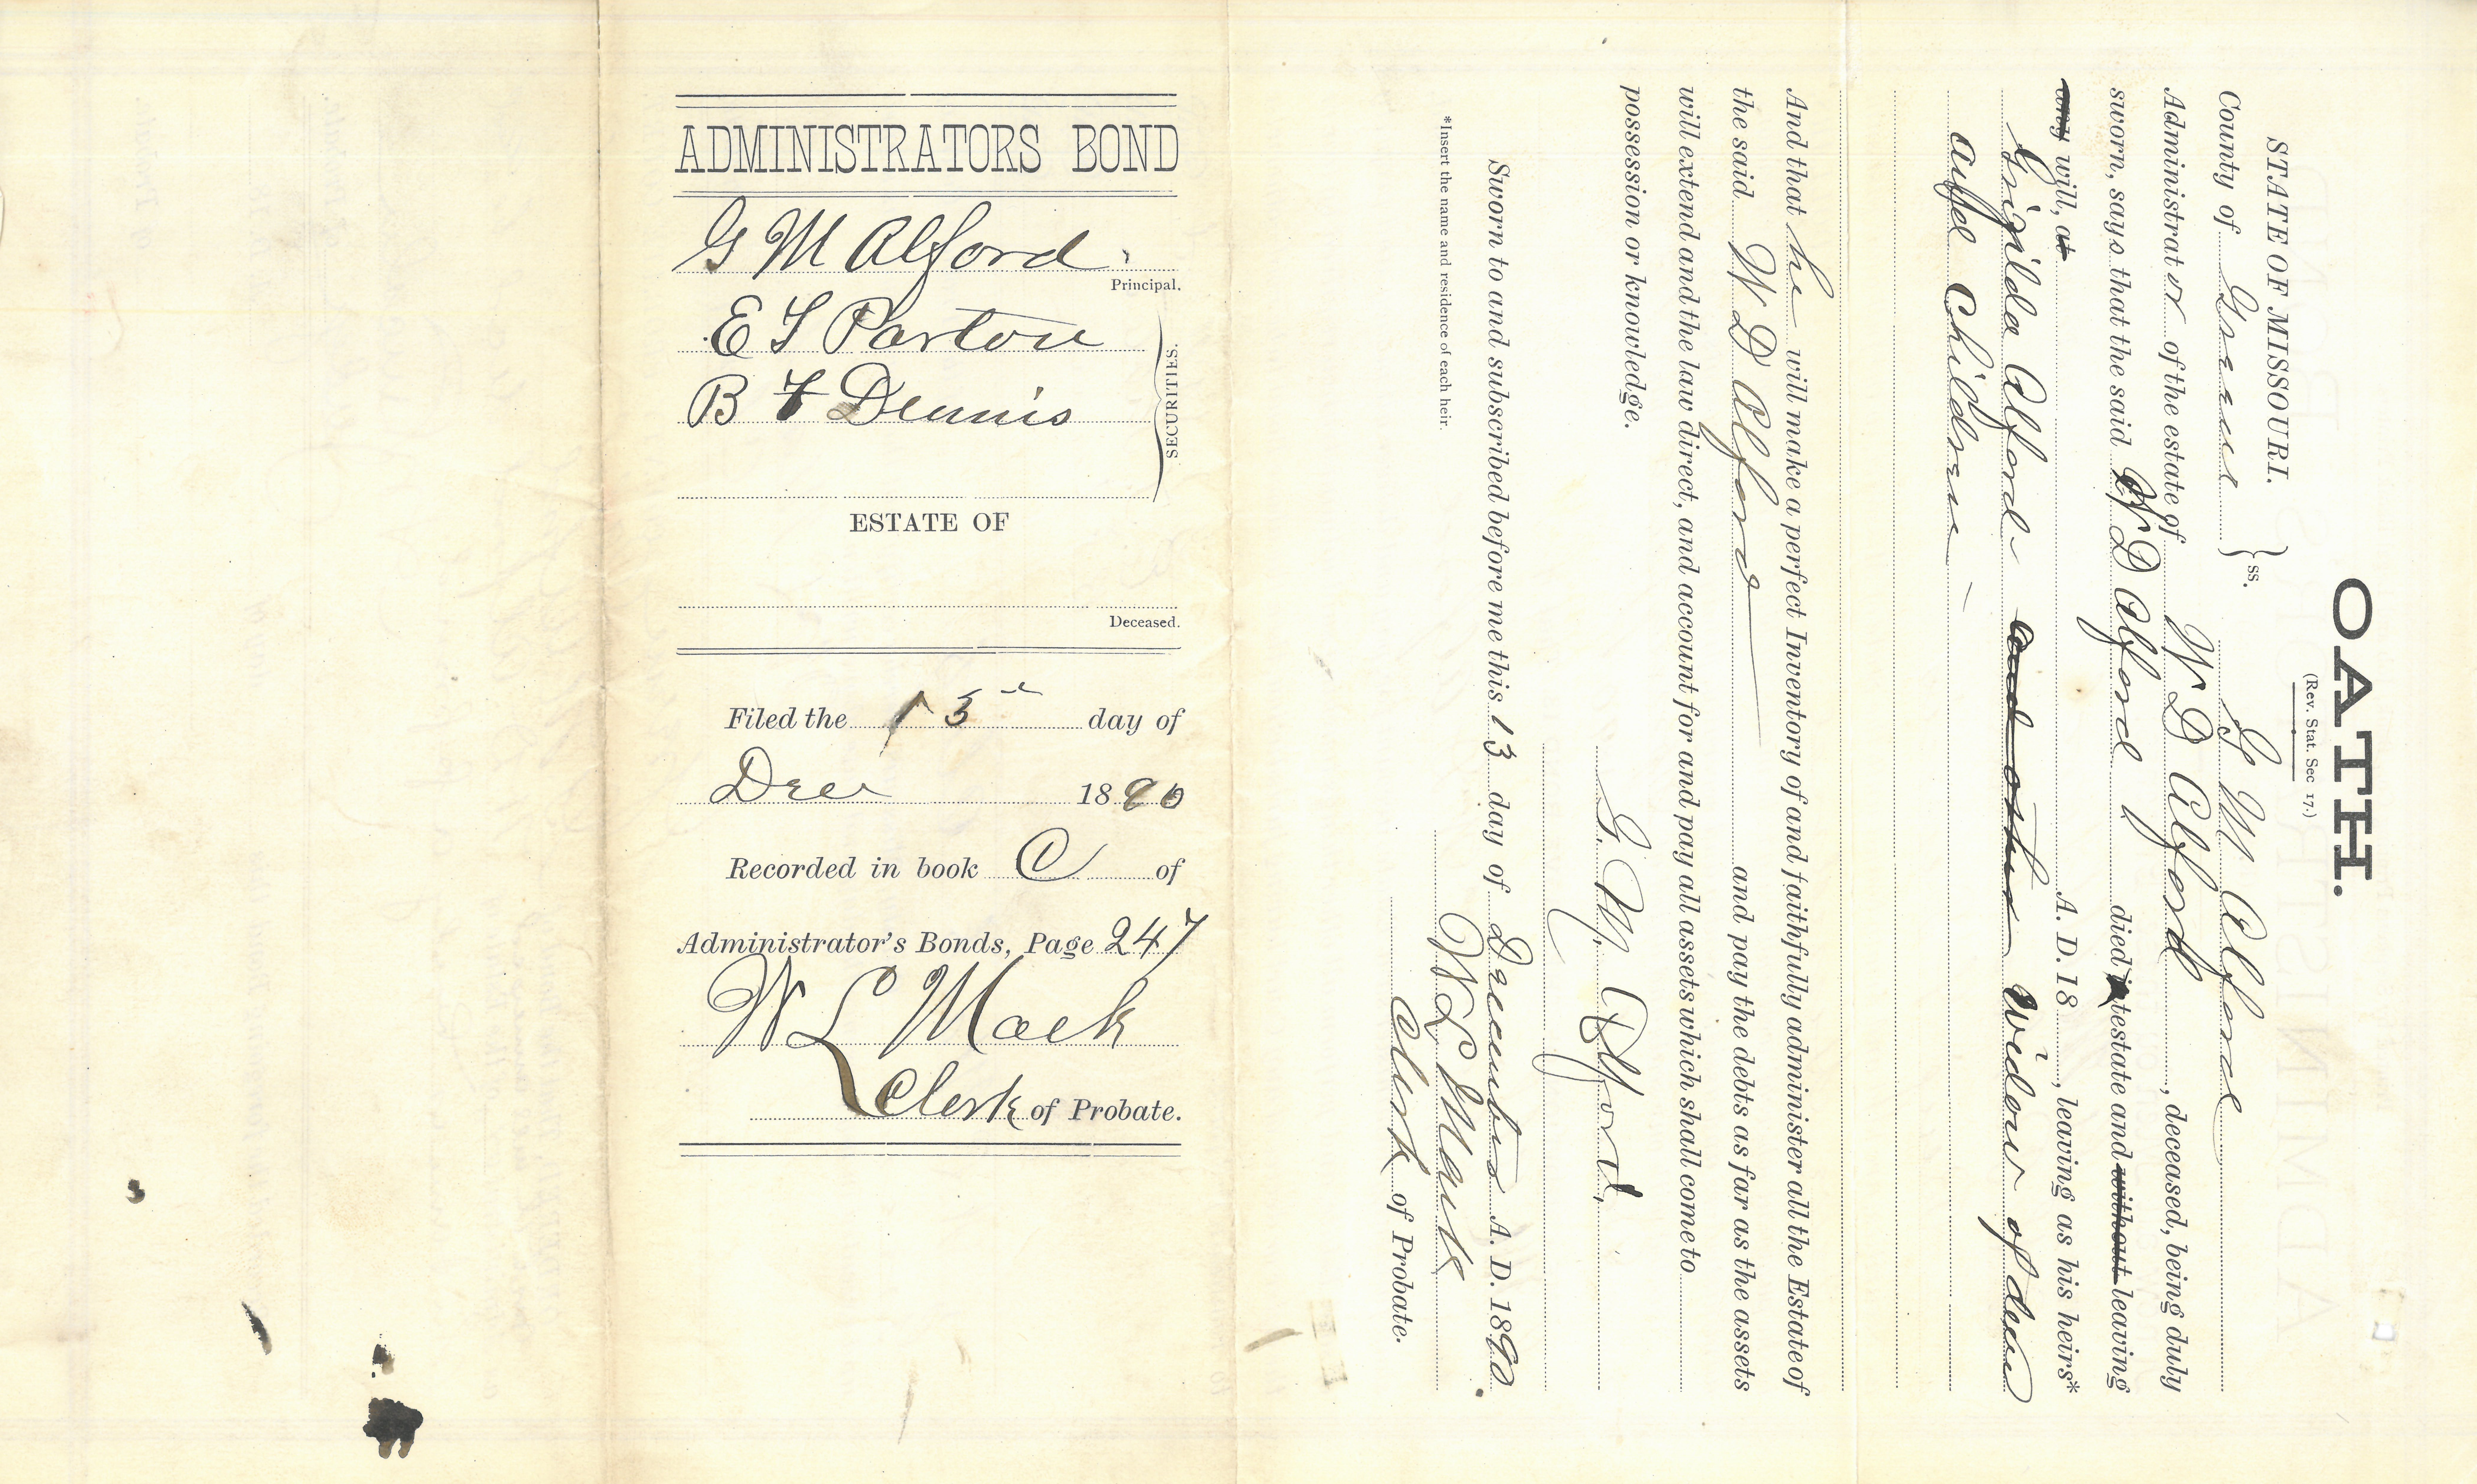 ADMINISTRATORS BOND
G M Alford.
Principal.
E T Parton
B F Dennis
SECURITIES.
ESTATE OF
Deceased.
Filed the 13" day of
Dec 1890
Recorded in book C of
Administrator's Bonds, Page 247
W L Mack
Clerk of Probate.
OATH.
(Rev. Stat. Sec 17.)
STATE OF MISSOURI.
County of Greene } ss. G M Alford
Administrator of the estate of W D Alford, deceased, being duly
sworn, says that the said W D Alford died testate and without leaving
any will, at A. D. 18 , leaving as his heirs*
Alford and other widow of dec
Children
And that he will make a perfect Inventory of and faithfully administer all the Estate of
the said W D Alford and pay the debts as far as the assets
will extend and the law direct, and account for and pay all assets which shall come to
possession or knowledge.
G. M. Alford,
Sworn to and subscribed before me this 13 day of December A. D. 1890.
W L Mack
Clerk of Probate.
*Insert the name and residence of each heir.